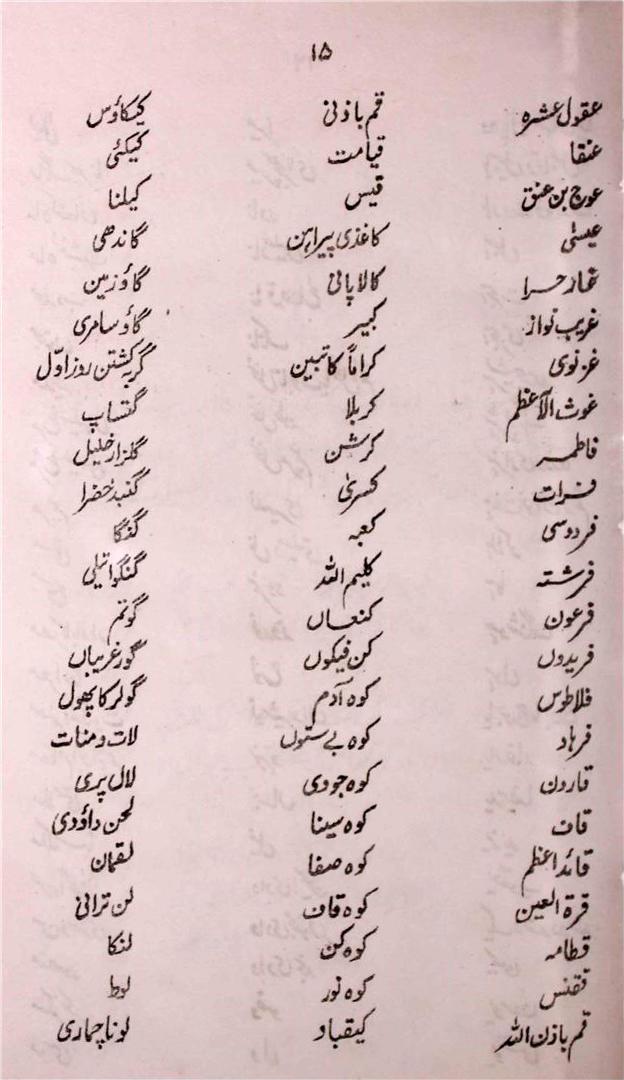 ۱۵
عقول عشرہ
عنقا
عوج بن عنق
عیسیٰ
غار حرا
غریب نواز
غزنوی
غوث الاعظم
فاطمہ
فرات
فردوسی
فرشتہ
فرعون
فریدوں
فلاطوس
فرہاد
قارون
قاف
قائد اعظم
قرۃ العین
قطامہ
ققنس
قم باذن اللہ
قم باذنی
قیامت
قیس
کاغذی پیراہن
کالا پانی
کبیر
کراماً کاتبین
کربلا
کرشن
کسریٰ
کعبہ
کلیم اللہ
کنعاں
کن فیکوں
کوہ آدم
کوہ بے ستوں
کوہ جودی
کوہ سینا
کوہ صفا
کوہ قاف
کوہ کن
کوہ نور
کیقباد
کیکاؤس
کیکئی
کیلنا
گاندھی
گاؤ زمین
گاؤ سامری
گربہ کشتن روز اوّل
گشتاپ
گلزار خلیل
گنبد خضرا
گنگا
گنگوا تیلی
گوتم
گور غریباں
گولر کا پھول
لات و منات
لال پری
لحن داؤدی
لقمان
لن ترانی
لنکا
لوط
لونا چماری